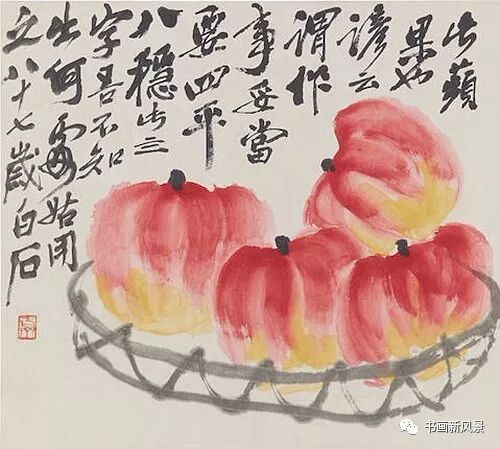 此蘋
果也
諺云
謂作
事妥當
要四平
八穩此三
字吾不知
出何處姑用
之八十七歲白石
书画新风景